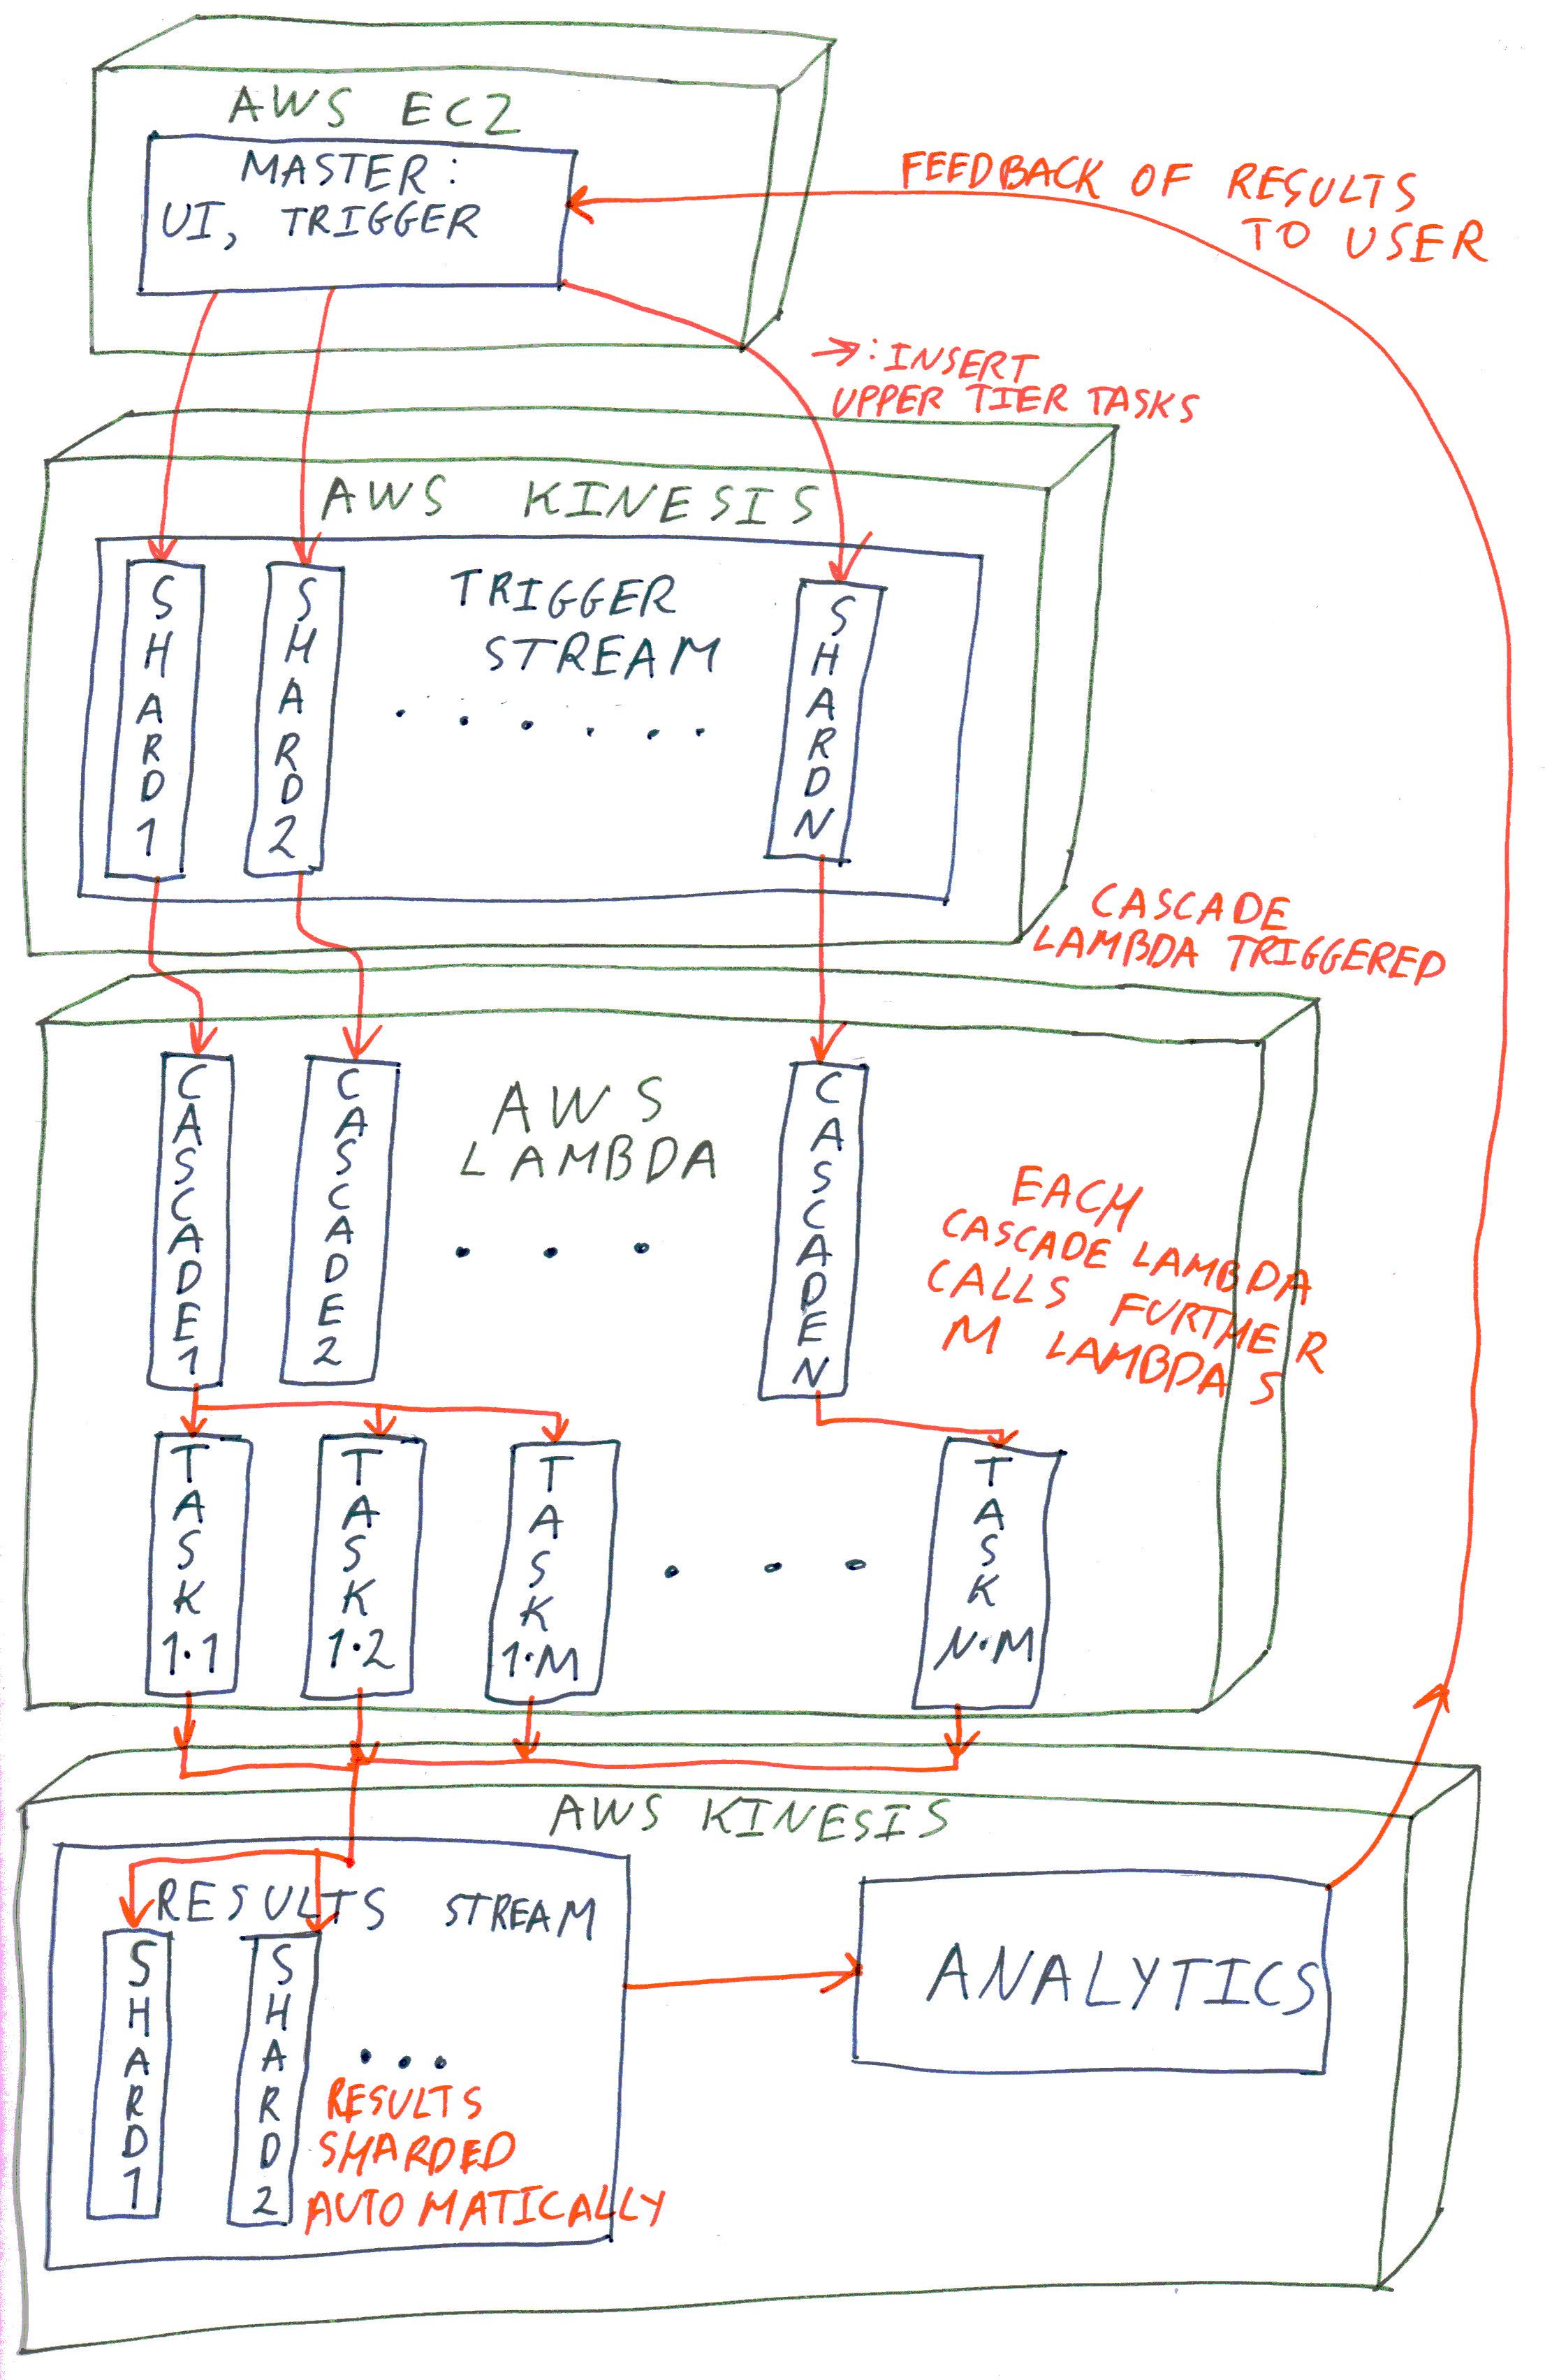 AWS EC2
MASTER:
UI, TRIGGER
FEEDBACK OF RESULTS
TO USER
→: INSERT
UPPER TIER TASKS
AWS KINESIS
TRIGGER
STREAM
. . . . . .
SHARD1
SHARD2
SHARDN
CASCADE
LAMBDA TRIGGERED
AWS
LAMBDA
CASCADE1
CASCADE2
. . .
CASCADEN
EACH
CASCADE LAMBDA
CALLS FURTHER
M LAMBDAS
TASK
1.1
TASK
1.2
TASK
1.M
. . .
TASK
N.M
AWS KINESIS
RESULTS STREAM
SHARD1
SHARD2
...
RESULTS
SHARDED
AUTOMATICALLY
ANALYTICS